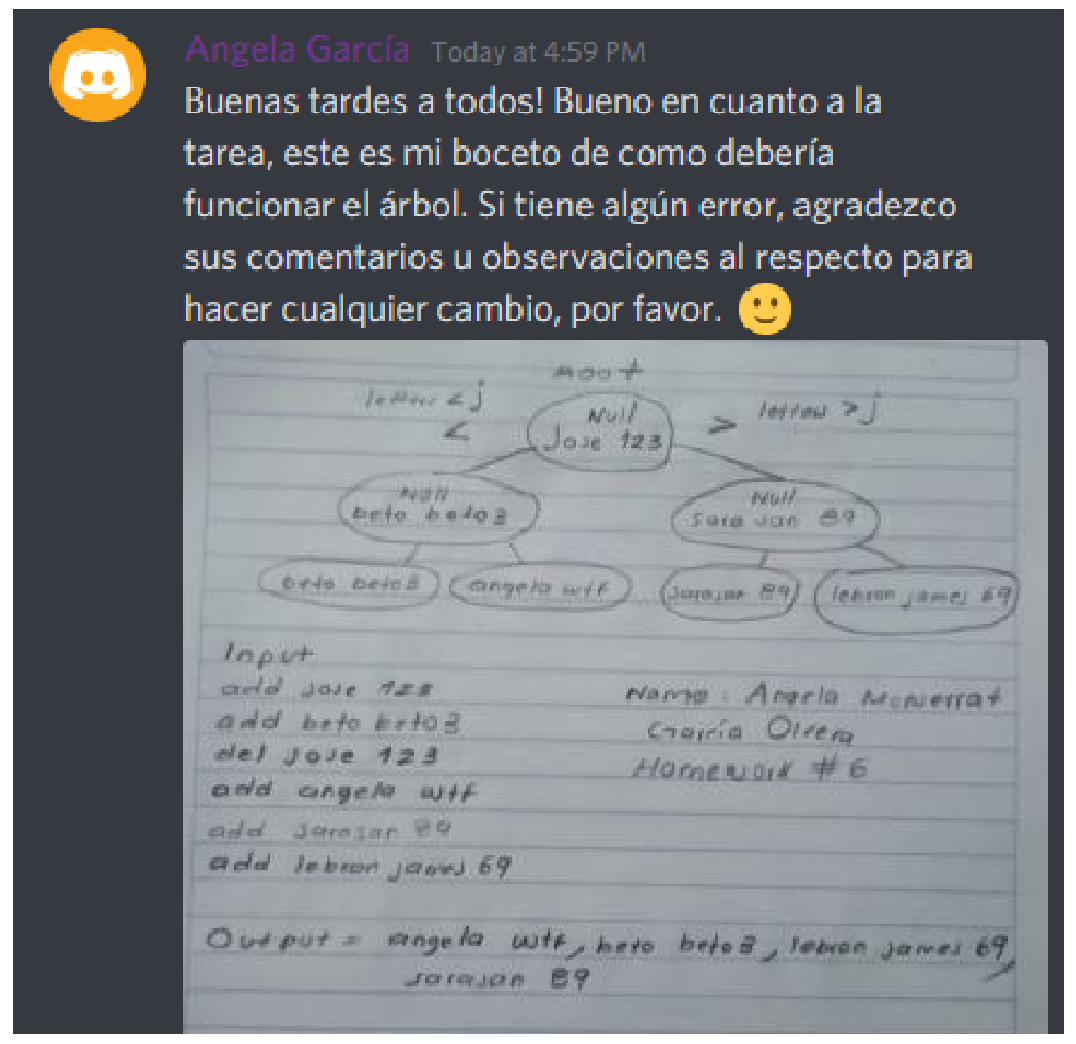 Angela García Today at 4:59 PM
Buenas tardes a todos! Bueno en cuanto a la
tarea, este es mi boceto de como debería
funcionar el árbol. Si tiene algún error, agradezco
sus comentarios u observaciones al respecto para
hacer cualquier cambio, por favor.
Root
letter < j
<
Null
Jose 123
>
letter > j
Null
beto beto3
Null
sara san 89
beto beto3
angela wtf
sarasan 89
lebron james 69
Input
add jose 123
add beto beto3
del jose 123
add angela wtf
add sarasan 89
add lebron james 69
Name: Angela
García Olvera
Homework # 6
Output = angela wtf, beto beto3, lebron james 69,
sarasan 89